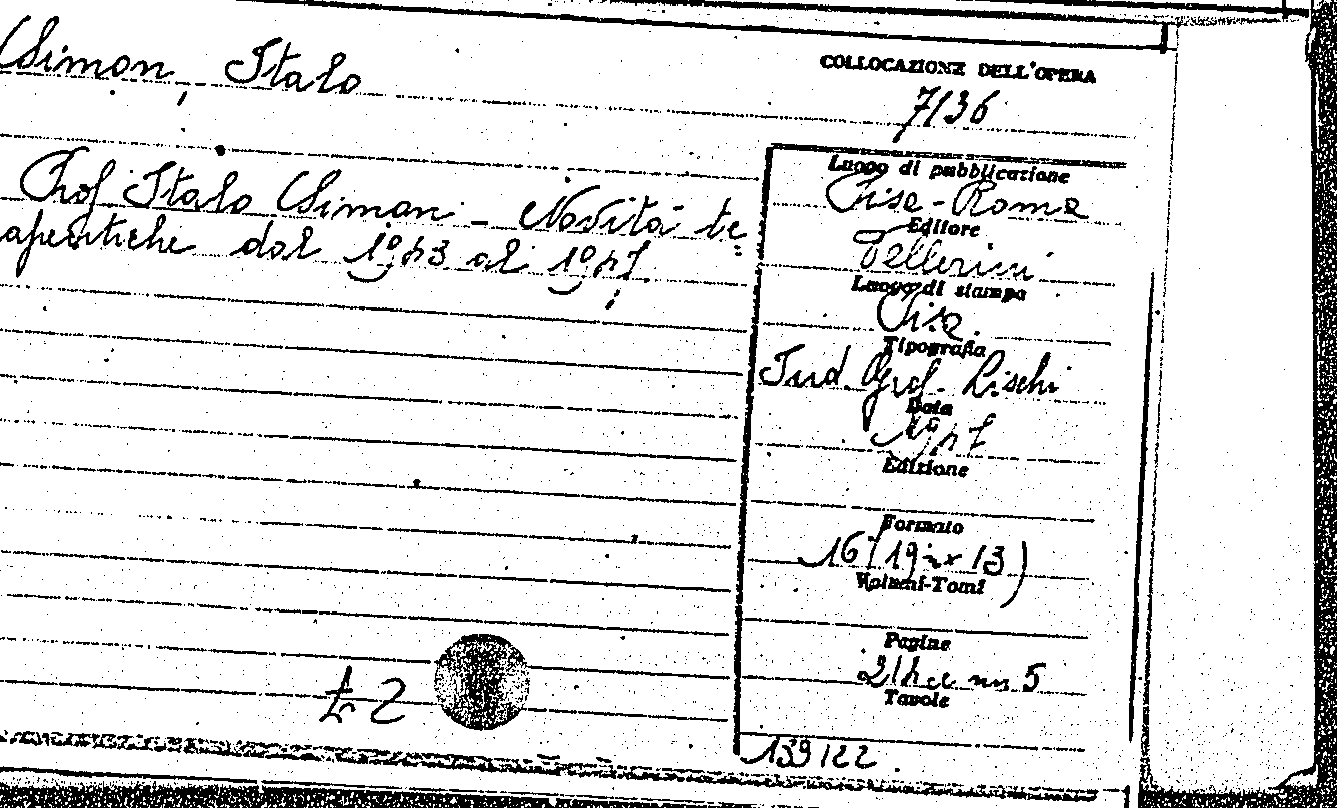 Simon, Italo
COLLOCAZIONE DELL'OPERA
7136
Prof Italo Simon - Novità te
apeutiche dal 1953 al 1957
Luogo di pubblicazione
Pisa-Roma
Editore
Vellerini
Luogo di stampa
Pisa
Tipografia
Ind Graf. Lischi
Data
1957
Edizione
Formato
16/(19 x 13)
Volumi-Tomi
Pagine
nn 5
Tavole
139122